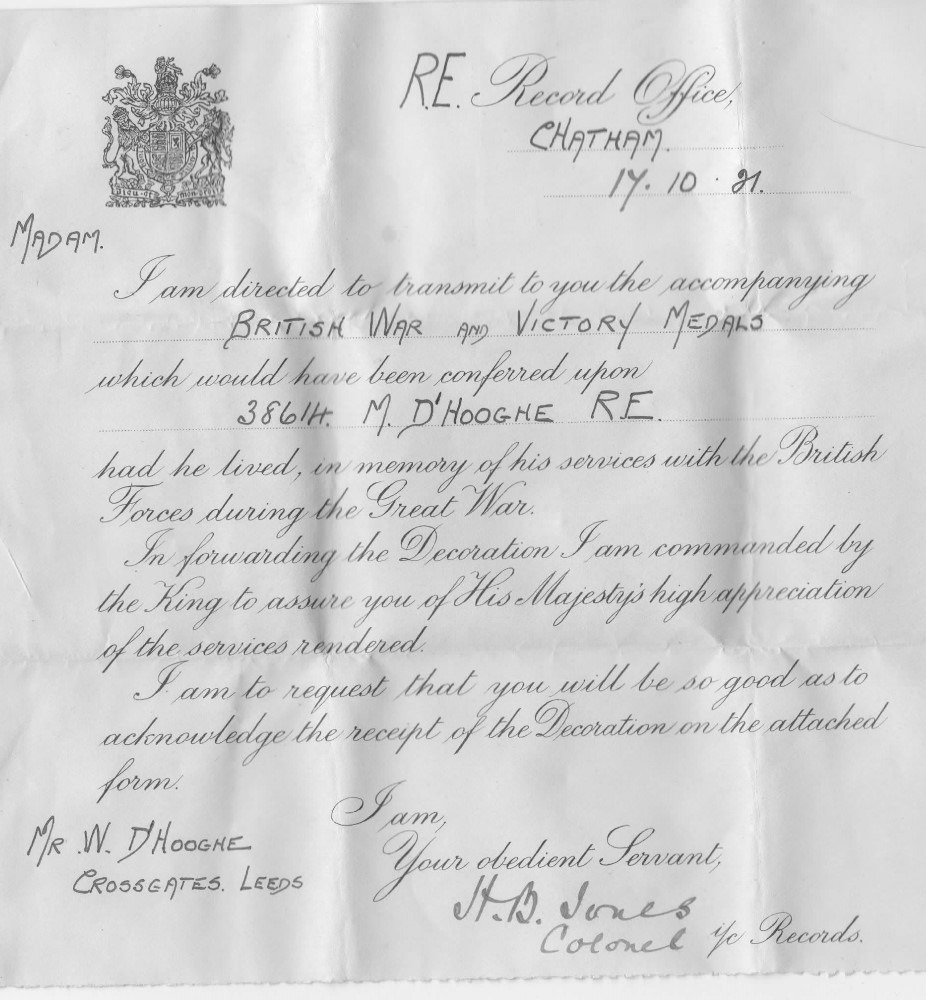 R.E. Record Office,
CHATHAM.
17. 10. 21.
MADAM.
I am directed to transmit to you the accompanying
BRITISH WAR AND VICTORY MEDALS
which would have been conferred upon
38614. M. D'HOOGHE R.E.
had he lived, in memory of his services with the British
Forces during the Great War.
In forwarding the Decoration I am commanded by
the King to assure you of His Majesty's high appreciation
of the services rendered.
I am to request that you will be so good as to
acknowledge the receipt of the Decoration on the attached
form.
I am,
Your obedient Servant,
H.B. Jones
Colonel i/c Records.
MR. W. D'HOOGHE
CROSSGATES. LEEDS